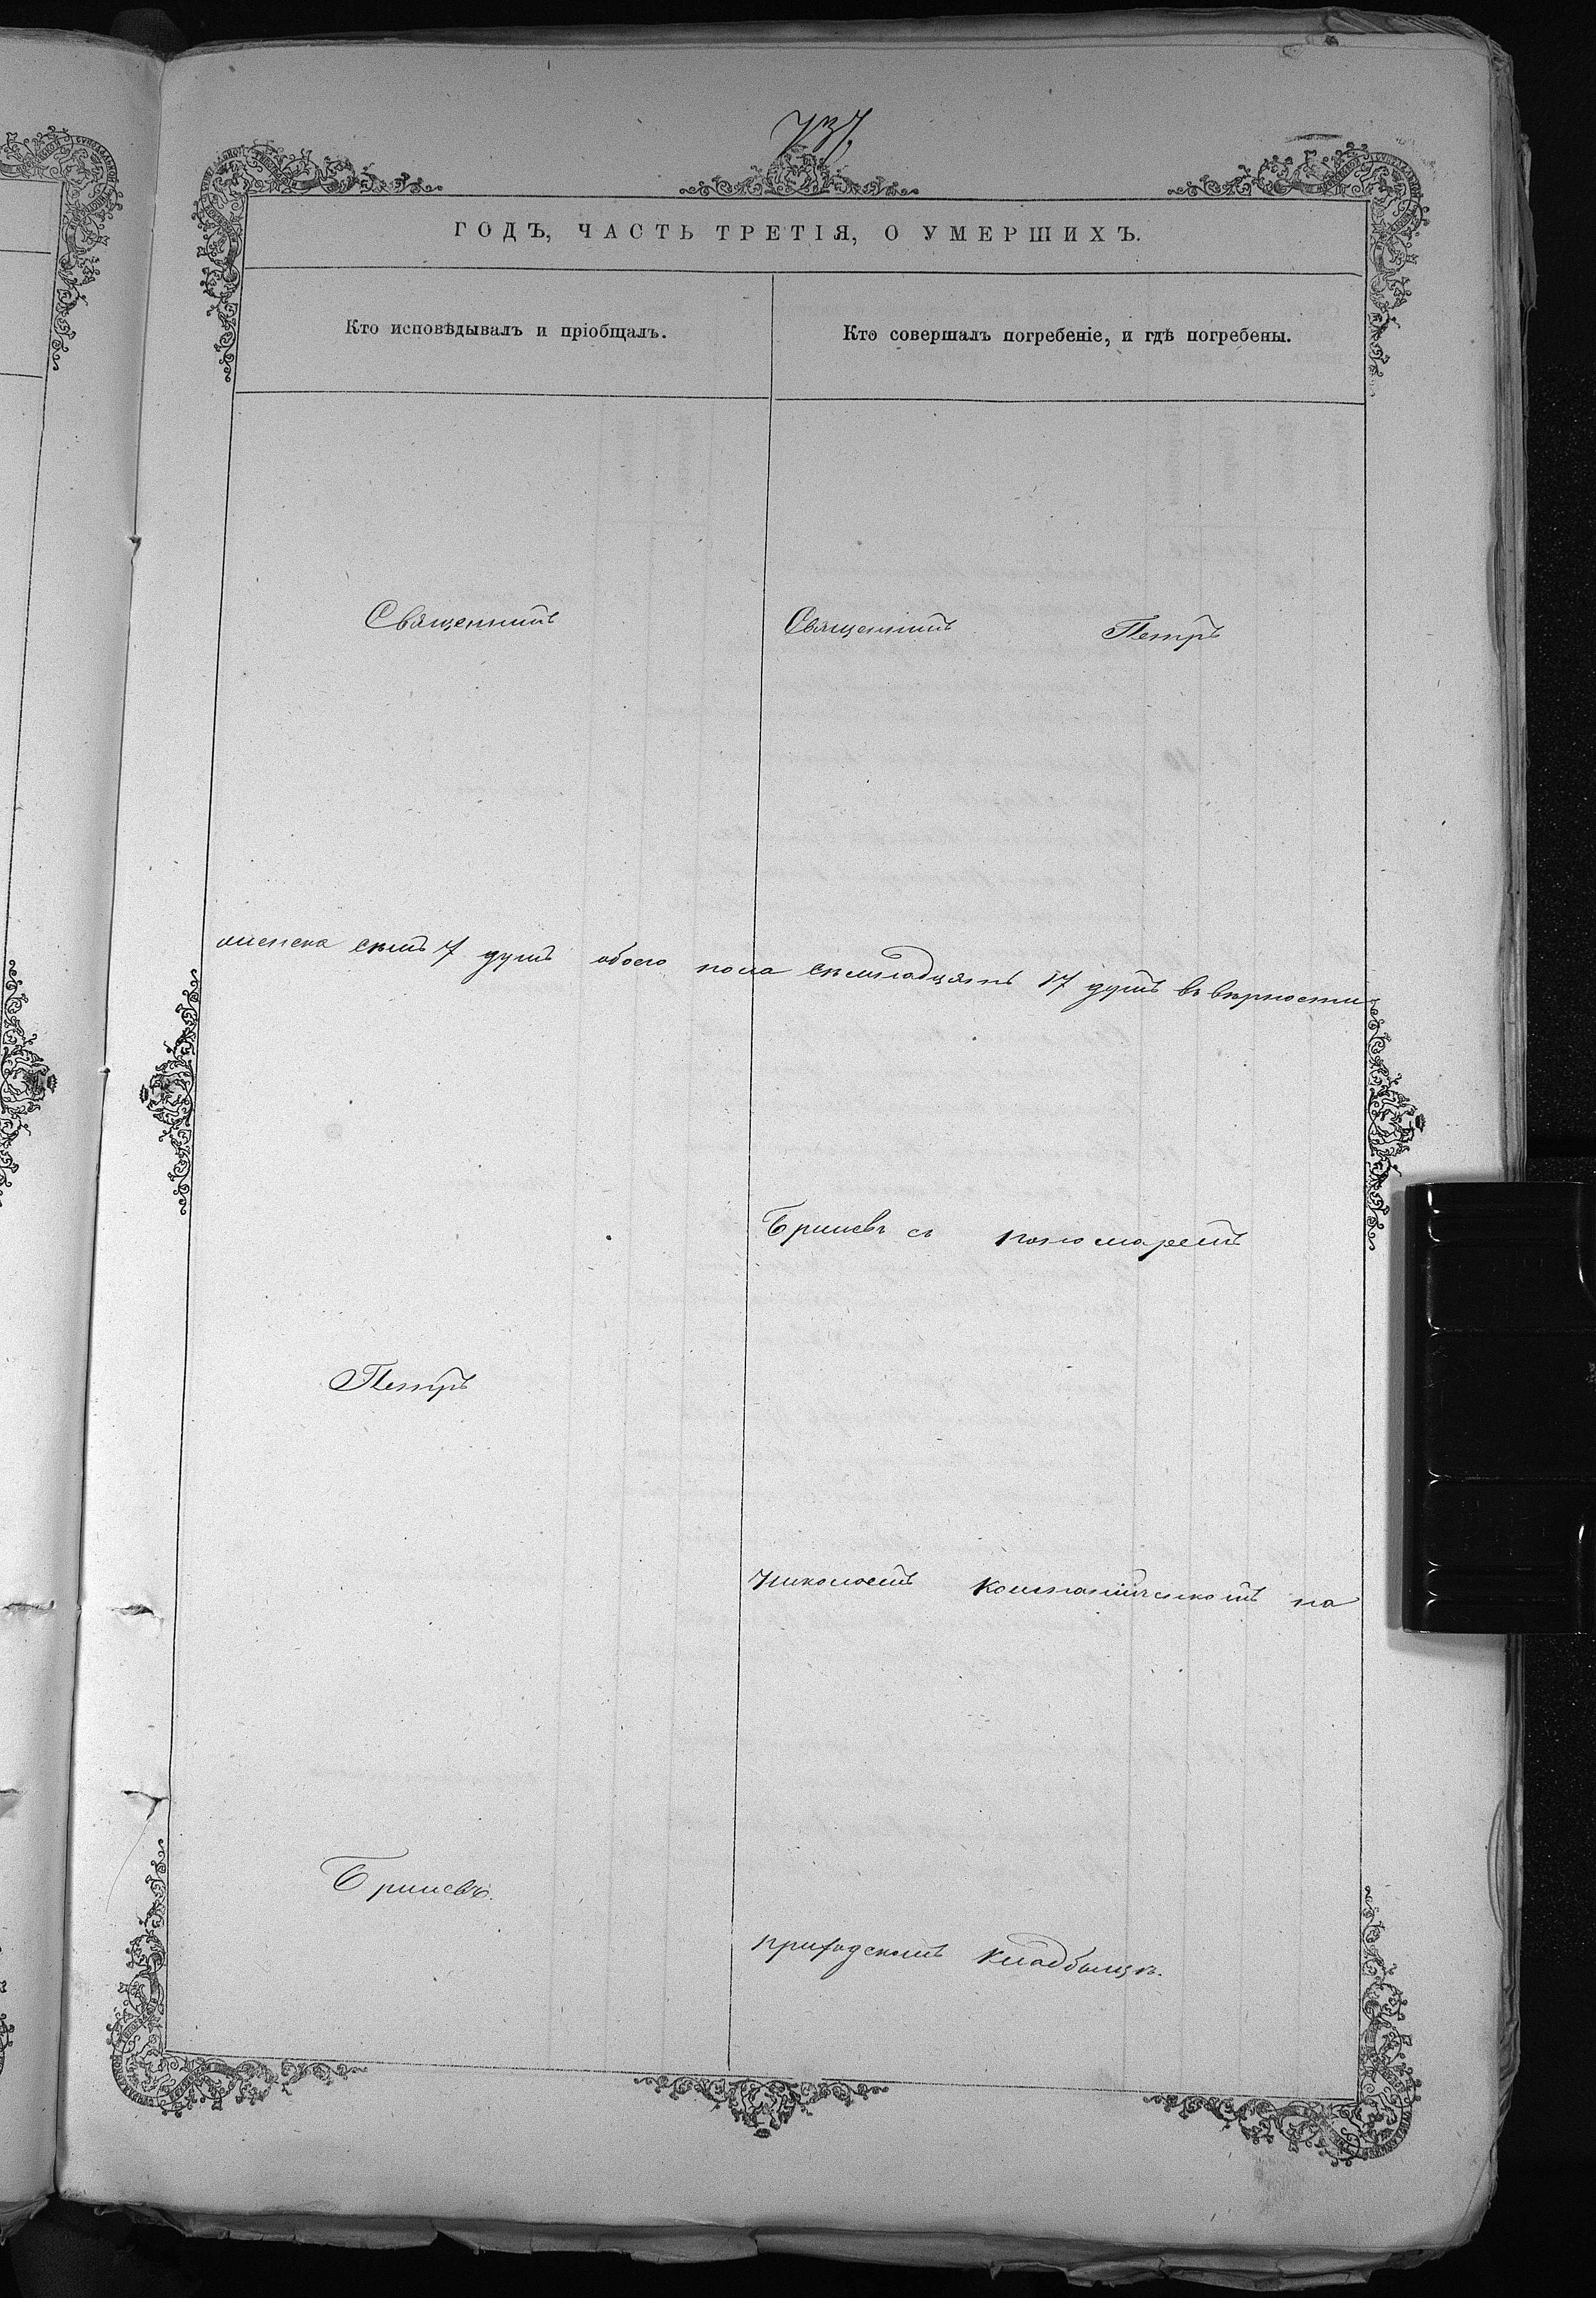 737.
ГОДЪ, ЧАСТЬ ТРЕТІЯ, О УМЕРШИХЪ.
Кто исповѣдывалъ и пріобщалъ.
Кто совершалъ погребеніе, и гдѣ погребены.
Священникъ
Священникъ Петръ
женска семь 7 душъ обоего пола семнадцать 17 душъ въ вѣрности
с пономаремъ
Петръ
Николаемъ на
приходскомъ кладбищѣ.